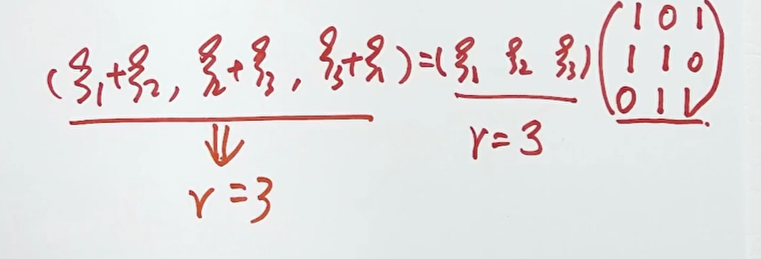 (ξ₁+ξ₂, ξ₂+ξ₃, ξ₃+ξ₁)=(ξ₁ ξ₂ ξ₃)(1 0 1
1 1 0
0 1 1)
r=3
r=3